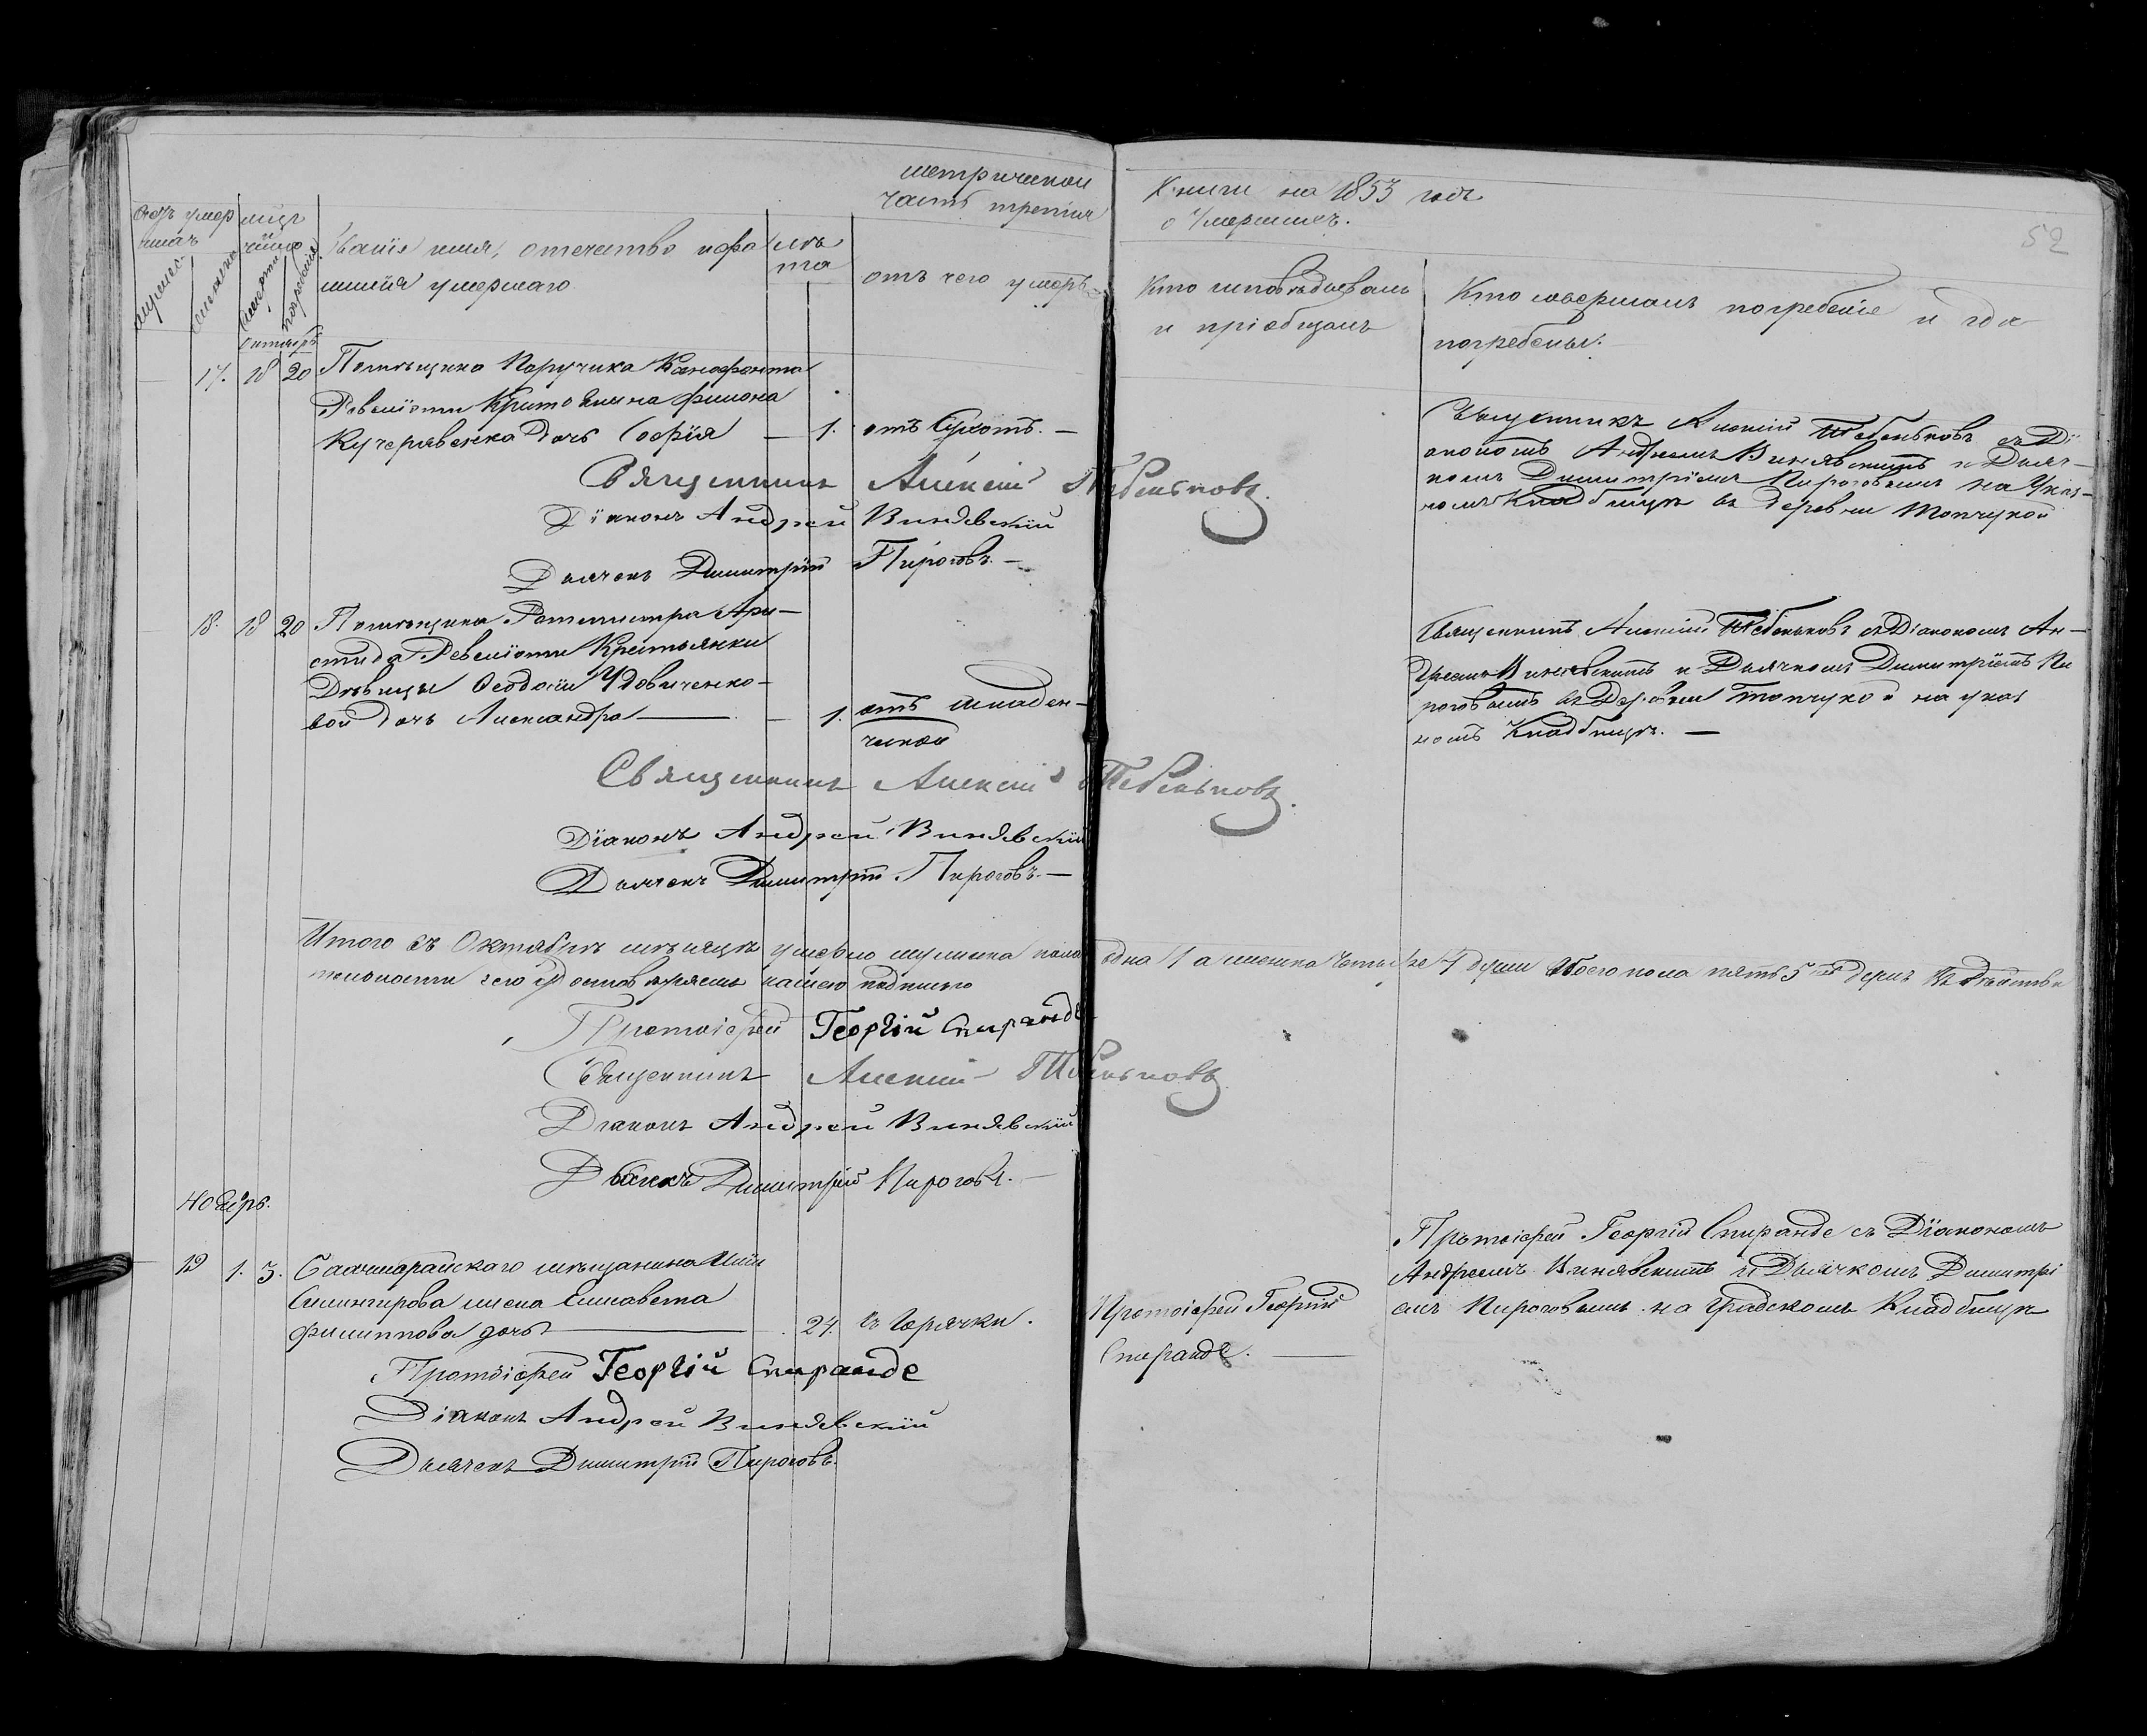 метрической
часть третія
Книги на 1853 годъ
о Умершихъ.
52
Счетъ умершихъ
мужес.
женска
мсцъ число
смерти
погребенія
Званіе имя, отечество и фамилія умершаго
лѣта
отъ чего умеръ
Кто исповѣдывалъ
и пріобщалъ
Кто совершалъ погребеніе и гдѣ
погребены.
Октябрь
17. 18 20 Помѣщика Поручика Ксенофонта
Ревеліоти Крестьянина Филона
Кучерявенка дочь Софія — 1. отъ Сухотъ. —
Священникъ Алексій Тебеньковъ съ Ді-
акономъ Андреемъ Винявскимъ и Дьяч-
комъ Димитріемъ Пироговымъ на Указ-
номъ Кладбищѣ въ деревни Топчукой
Священникъ Алексій Тебеньковъ.
Діаконъ Андрей Винявскій
Дьячекъ Димитрій Пироговъ. —
18. 18 20 Помѣщика Ротмистра Ари-
стида Ревеліоти Крестьянки
Дѣвицы Ѳеодосіи Удовиченко-
вой дочь Александра — 1. отъ младен-
ческой
Священникъ Алексій Тебеньковъ съ Діакономъ Ан-
дреемъ Винявскимъ и Дьячкомъ Димитріемъ Пи
роговымъ въ Деревни Топчукой на указ
номъ Кладбищѣ. —
Священникъ Алексій Тебеньковъ.
Діаконъ Андрей Винявскій
Дьячекъ Димитрій Пироговъ. —
Итого въ Октябрѣ мѣсяцѣ умерло мужеска пола одна 1 а женска четыре 4 души обоего пола пять 5 душъ въ дѣйстви
тельности чего удостовѣряемъ нашею подписью
Протоіерей Георгій Спиранде
Священникъ Алексій Тебеньковъ
Діаконъ Андрей Винявскій
Дьячекъ Димитрій Пироговъ. —
Ноябрь.
19 1. 3. Бахчисарайскаго мѣщанина
жена Елисавета
Филиппова дочь — 24. въ Горячки.
Протоіерей Георгій
Спиранде. —
Протоіерей Георгій Спиранде съ Діакономъ
Андреемъ Винявскимъ и Дьячкомъ Димитрі
емъ Пироговымъ на Градскомъ Кладбищѣ
Протоіерей Георгій Спиранде
Діаконъ Андрей Винявскій
Дьячекъ Димитрій Пироговъ.